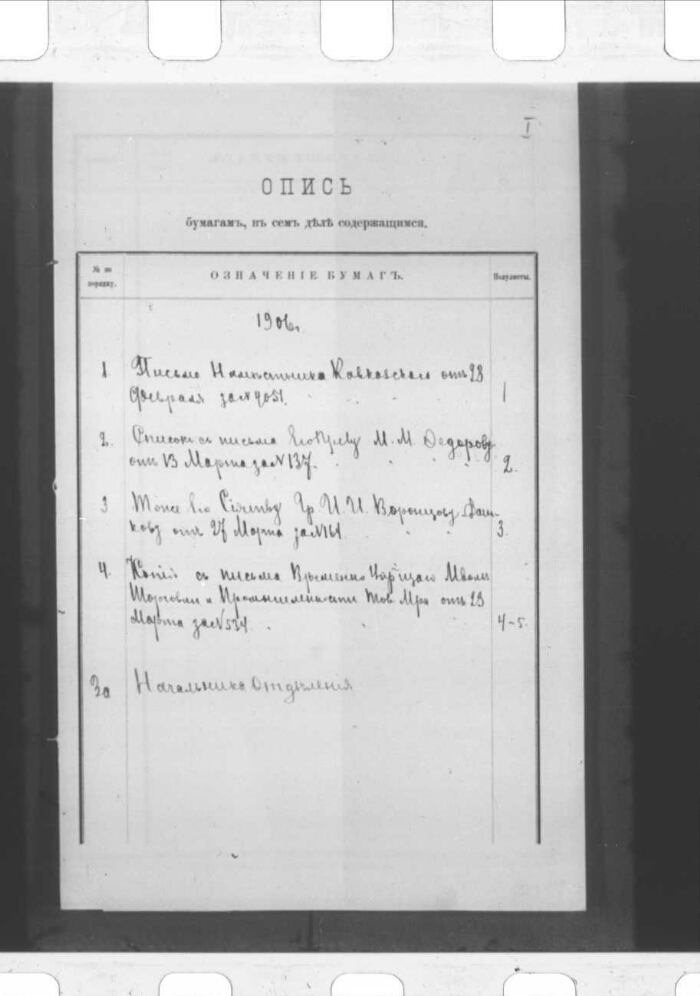 I
ОПИСЬ
бумагамъ, въ семъ дѣлѣ содержащимся.
№ по порядку.
ОЗНАЧЕНІЕ БУМАГЪ.
Полулисты.
1906 г.
1 Письмо Намѣстника Кавказскаго отъ 28
Февраля за №4051. 1
2. Списокъ съ письма Его Прву М. М. Федорову
отъ 13 Марта за №137. 2.
3 Тоже Его Сіятву Гр И. И. Воронцову Даш-
кову отъ 27 Марта за №161 3.
4. Копія съ письма Временно Упрщаго Мвомъ
Торговли и Промышленности Тов. Мра отъ 23
Марта за №534 4-5.
За Начальника Отдѣленія